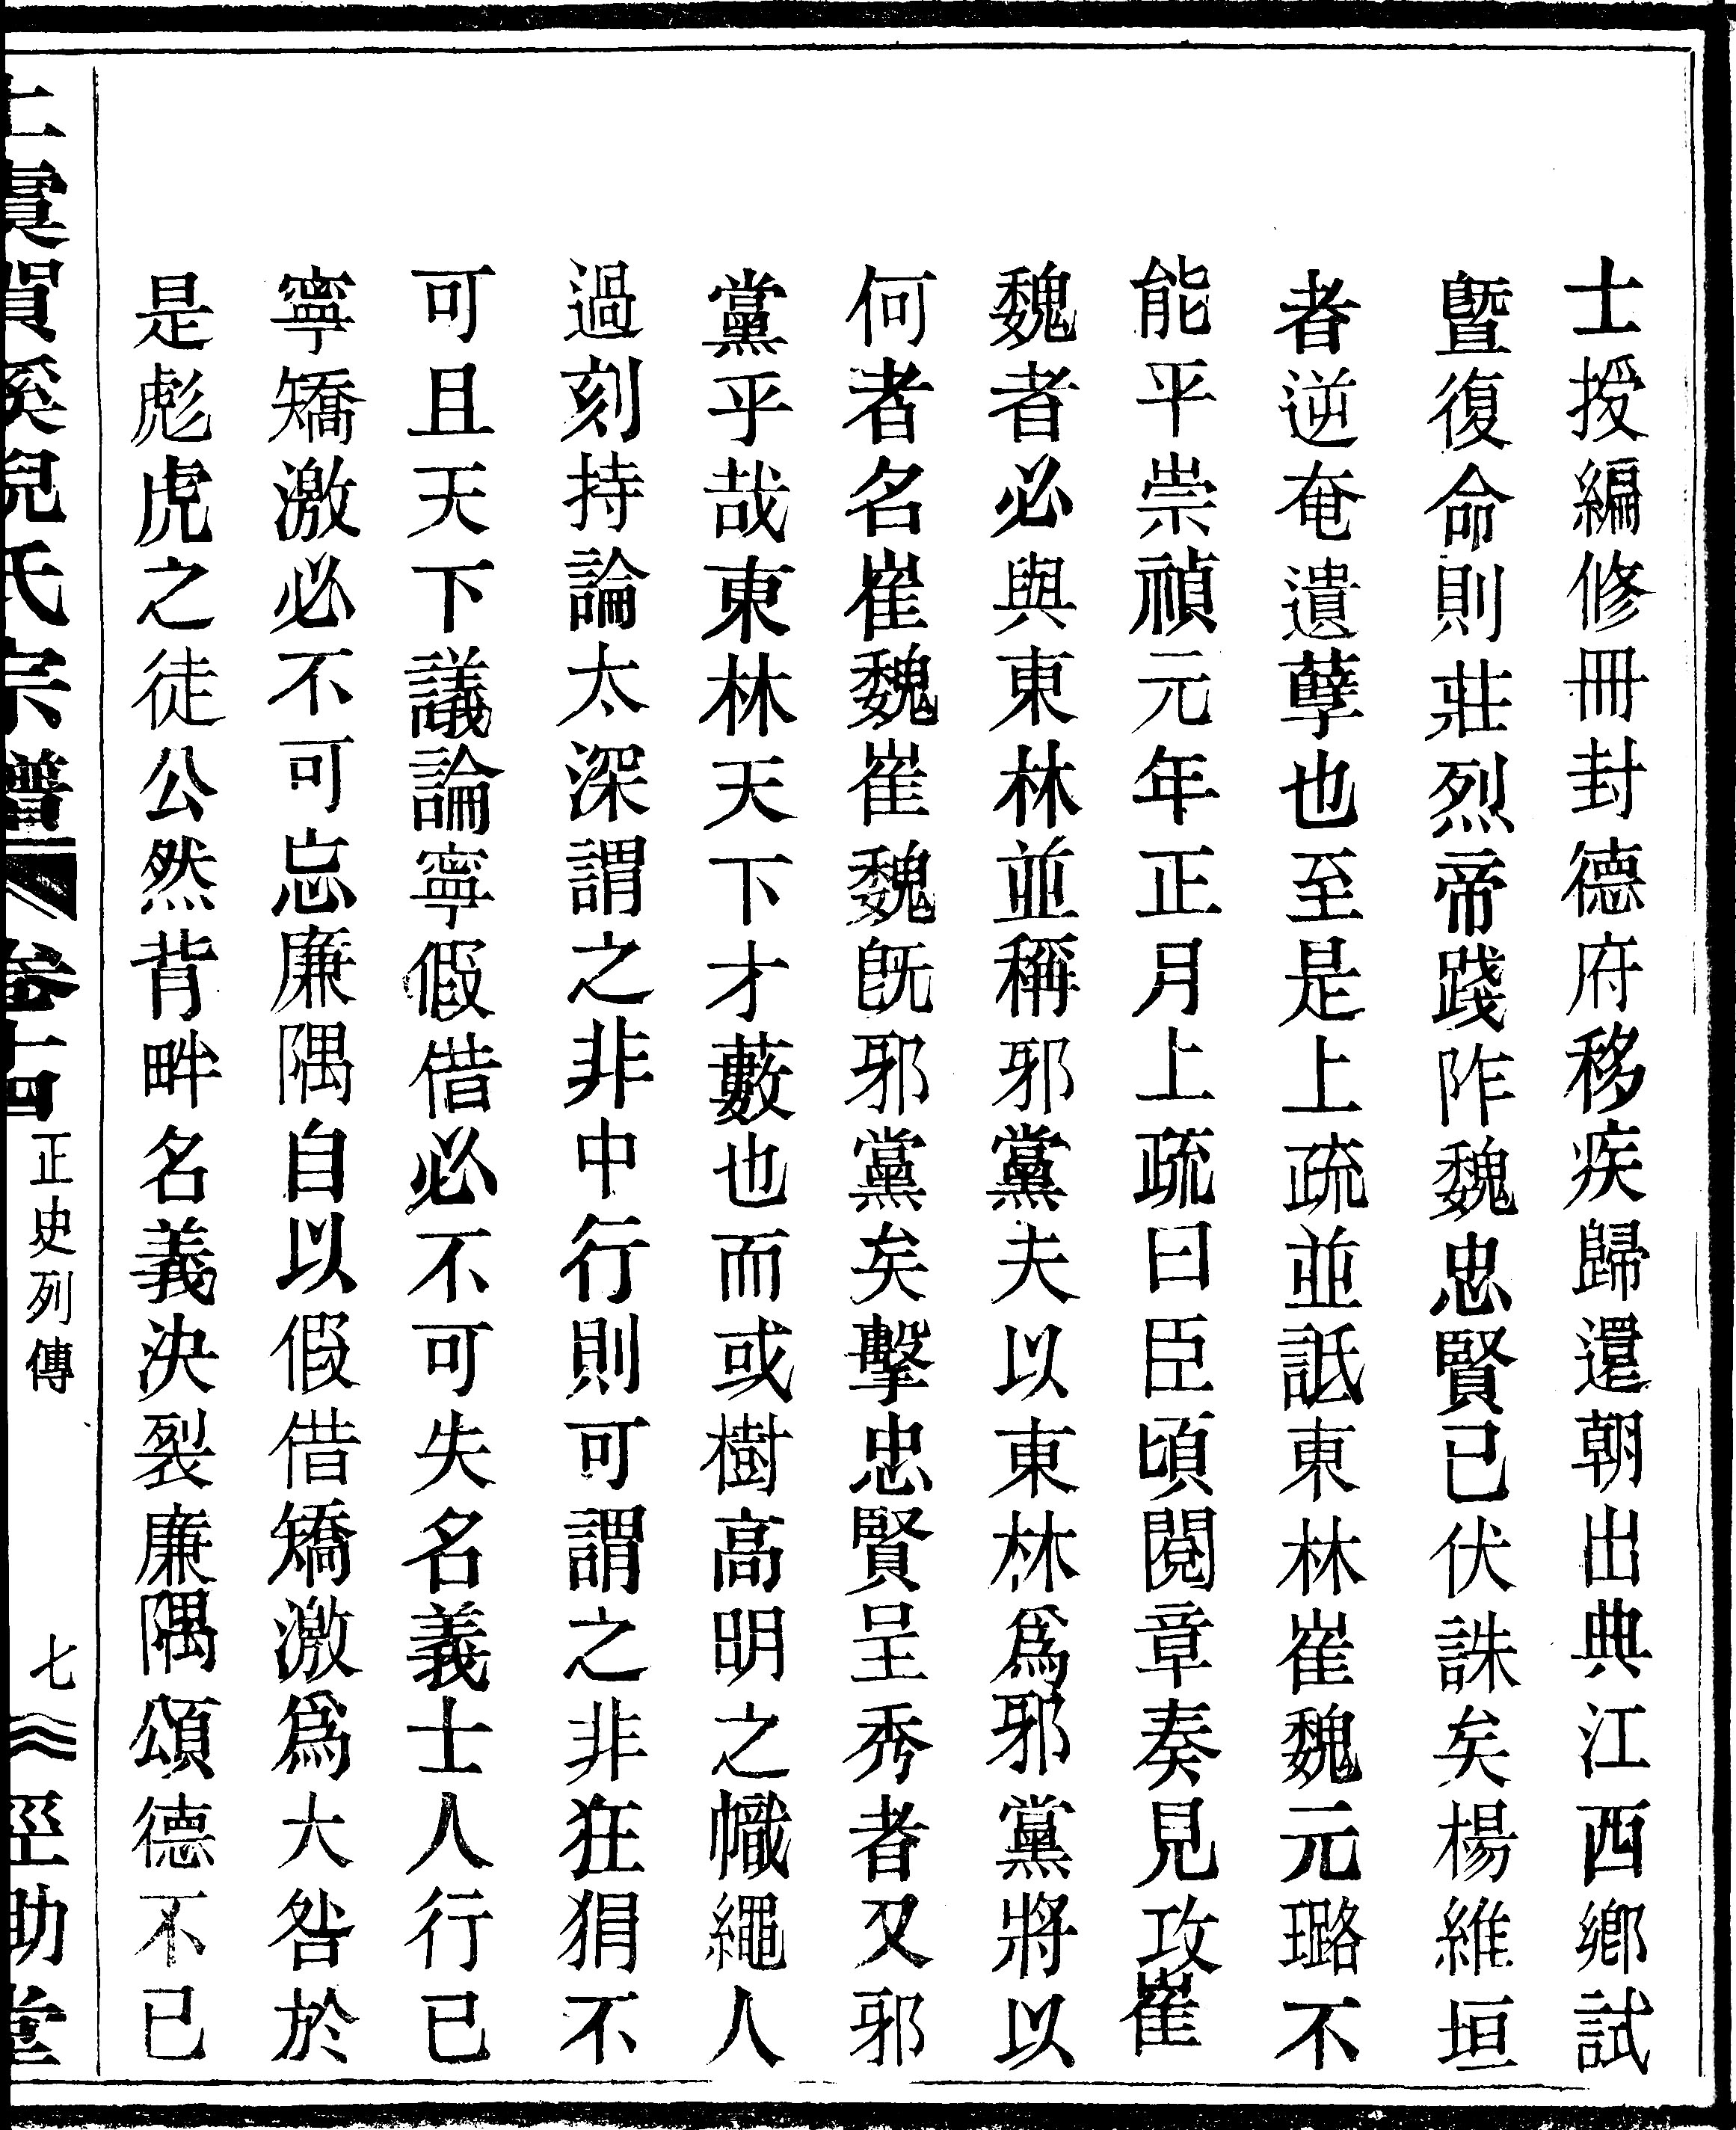 士授編修冊封德府移疾歸還朝出典江西鄉試
曁復命則莊烈帝踐阼魏忠賢已伏誅矣楊維垣
者逆奄遺孽也至是上疏並詆東林崔魏元璐不
能平崇禎元年正月上疏曰臣頃閱章奏見攻崔
魏者必與東林並稱邪黨夫以東林爲邪黨將以
何者名崔魏崔魏旣邪黨矣擊忠賢呈秀者又邪
黨乎哉東林天下才藪也而或樹高明之幟繩人
過刻持論太深謂之非中行則可謂之非狂狷不
可且天下議論寧假借必不可失名義士人行已
寧矯激必不可忘廉隅自以假借矯激爲大咎於
是彪虎之徒公然背畔名義決裂廉隅頌德不已
上虞賀溪倪氏宗譜 卷十四 正史列傳 七 巠助堂